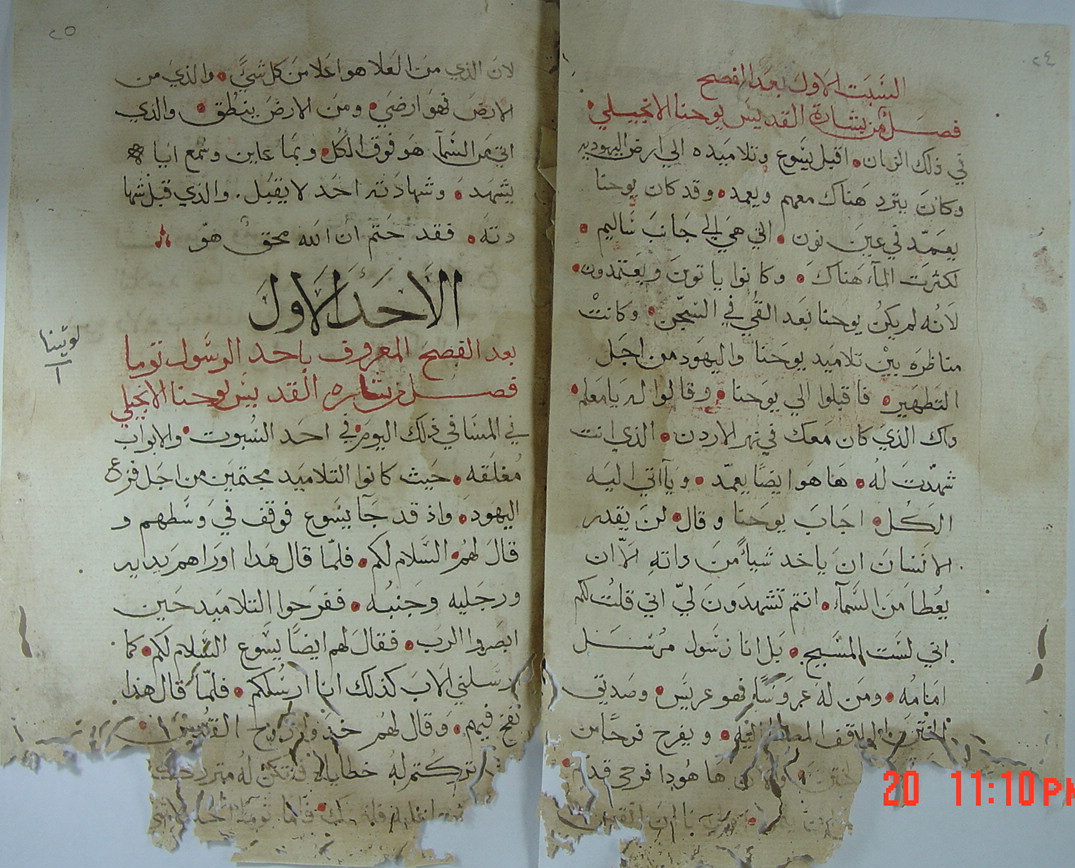 ٢٤
السبت الاول بعد الفصح
فصل من بشارة القديس يوحنا الانجيلي
في ذلك الزمان اقبل يسوع وتلاميذه الي ارض اليهوديه
وكان يتردد هناك معهم ويعمد وقد كان يوحنا
يعمد في عين نون التي هي الي جانب ساليم
لكثرت المآء هناك وكانوا ياتون ويعتمدون
لانه لم يكن يوحنا بعد القي في السجن وكانت
مناظره بين تلاميد يوحنا واليهود من اجل
التطهير فاقبلوا الي يوحنا وقالوا له يا معلم
داك الذي كان معك في نهر الاردن الذي انت
شهدت له ها هو ايضًا يعمد وياآتي اليه
الكل اجاب يوحنا وقال لن يقدر
الانسان ان ياخد شياً من داته الا ان
يعُطا من السمآء انتم تشهدون لي اني قلت لكم
اني لست المسيح بل انا رسول مرسل
امامه ومن له عروسًا فهو عريس وصديق
الختن الواقف ويفرح فرحًا من
ها هودا فرحي قد
٢٥
لان الذي من العلا هو اعلا من كل شيً والذي من
الارض فهو ارضي ومن الارض ينطق والذي
اتي من السمآ هو فوق الكل وبما عاين وسمع ايا
يشهد وشهادته احد لا يقبل والذي قبل شها
دته فقد ختم ان الله محق هو
الاحد الاول
بعد الفصح المعروف باحد الرسول توما
فصل من بشاره القديس يوحنا الانجيلي
في المسا في ذلك اليوم في احد السبوت والابواب
مغلقه حيث كانوا التلاميد مجتمين من اجل فزع
اليهود واذ قد جآ يسوع فوقف في وسطهم و
قال لهم السلام لكم فلما قال هدا اوراهم يدايه
ورجليه وجنبه ففرحوا التلاميد حين
ابصروا الرب فقال لهم ايضًا يسوع السلام لكم كما
رسلني الاب كدلك انا ارسلكم فلما قال هدا
نفخ فيهم وقال لهم خدوا روح القدس
تركتم له خطاياه